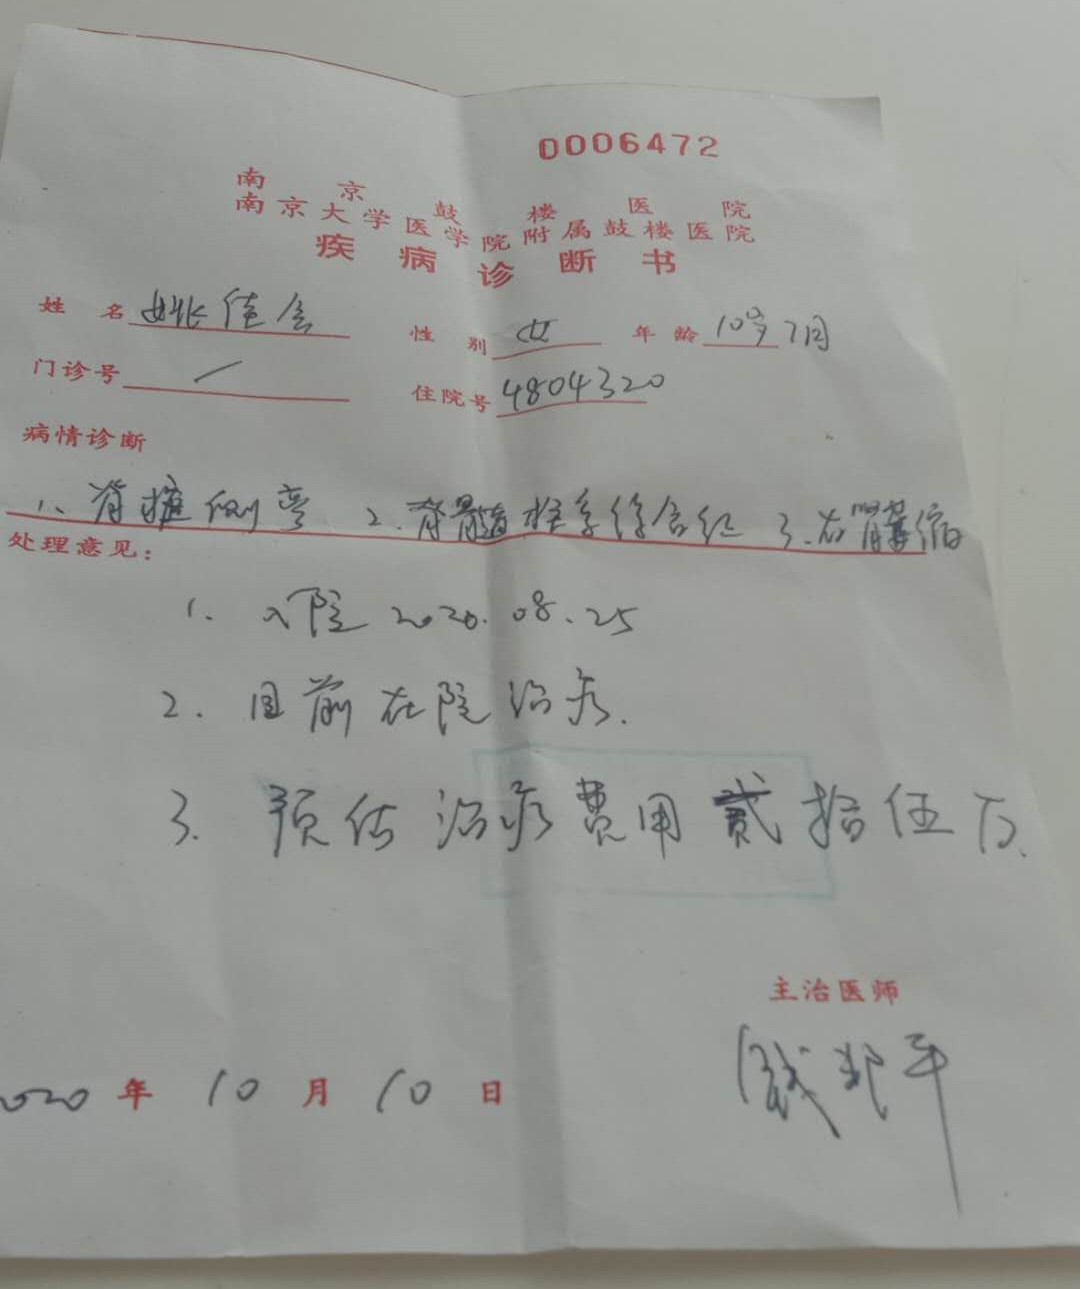 0006472
南京鼓楼医院
南京大学医学院附属鼓楼医院
疾病诊断书
姓名 姚佳 性别 女 年龄 10岁7月
门诊号 / 住院号 4804320
病情诊断
1、脊椎侧弯 2.脊髓拴系综合征 3.右肾萎缩
处理意见：
1. 入院 2020.08.25
2. 目前在院治疗.
3. 预估治疗费用贰拾伍万.
主治医师
钱邦平
2020年10月10日